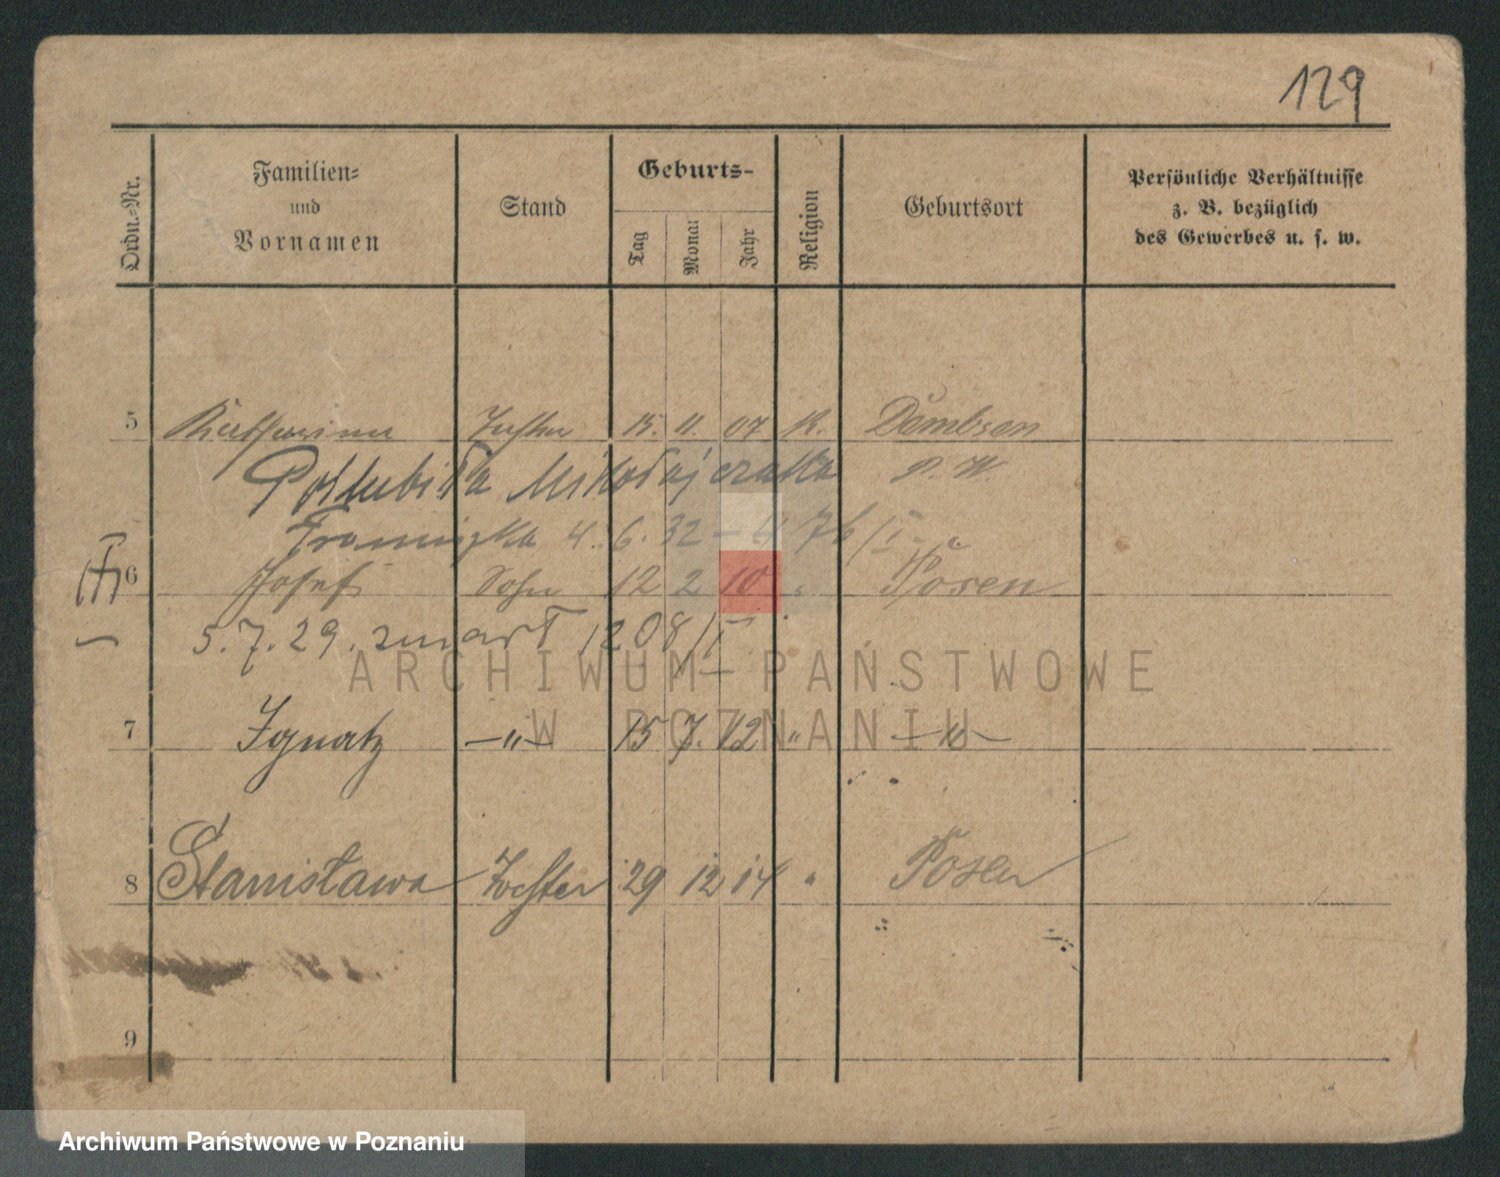 129
Ordn.-Nr.
Familien-
und
Vornamen
Stand
Geburts-
Tag
Monat
Jahr
Religion
Geburtsort
Persönliche Verhältnisse
z. B. bezüglich
des Gewerbes u. s. w.
5 Katharina Tochter 15. 11. 07 K. Dembsen
Poślubiła Mikołajczaka P. W.
Franciszka 4. 6. 32 - 4 76/I
6 Josef Sohn 12 2 10 " Posen
5. 7. 29. zmarł 1208/I
7 Ignatz —"— 15 7. 12 " —"—
8 Stanisława Tochter 29 12 14 " Posen
9
ARCHIWUM PAŃSTWOWE
W POZNANIU
Archiwum Państwowe w Poznaniu